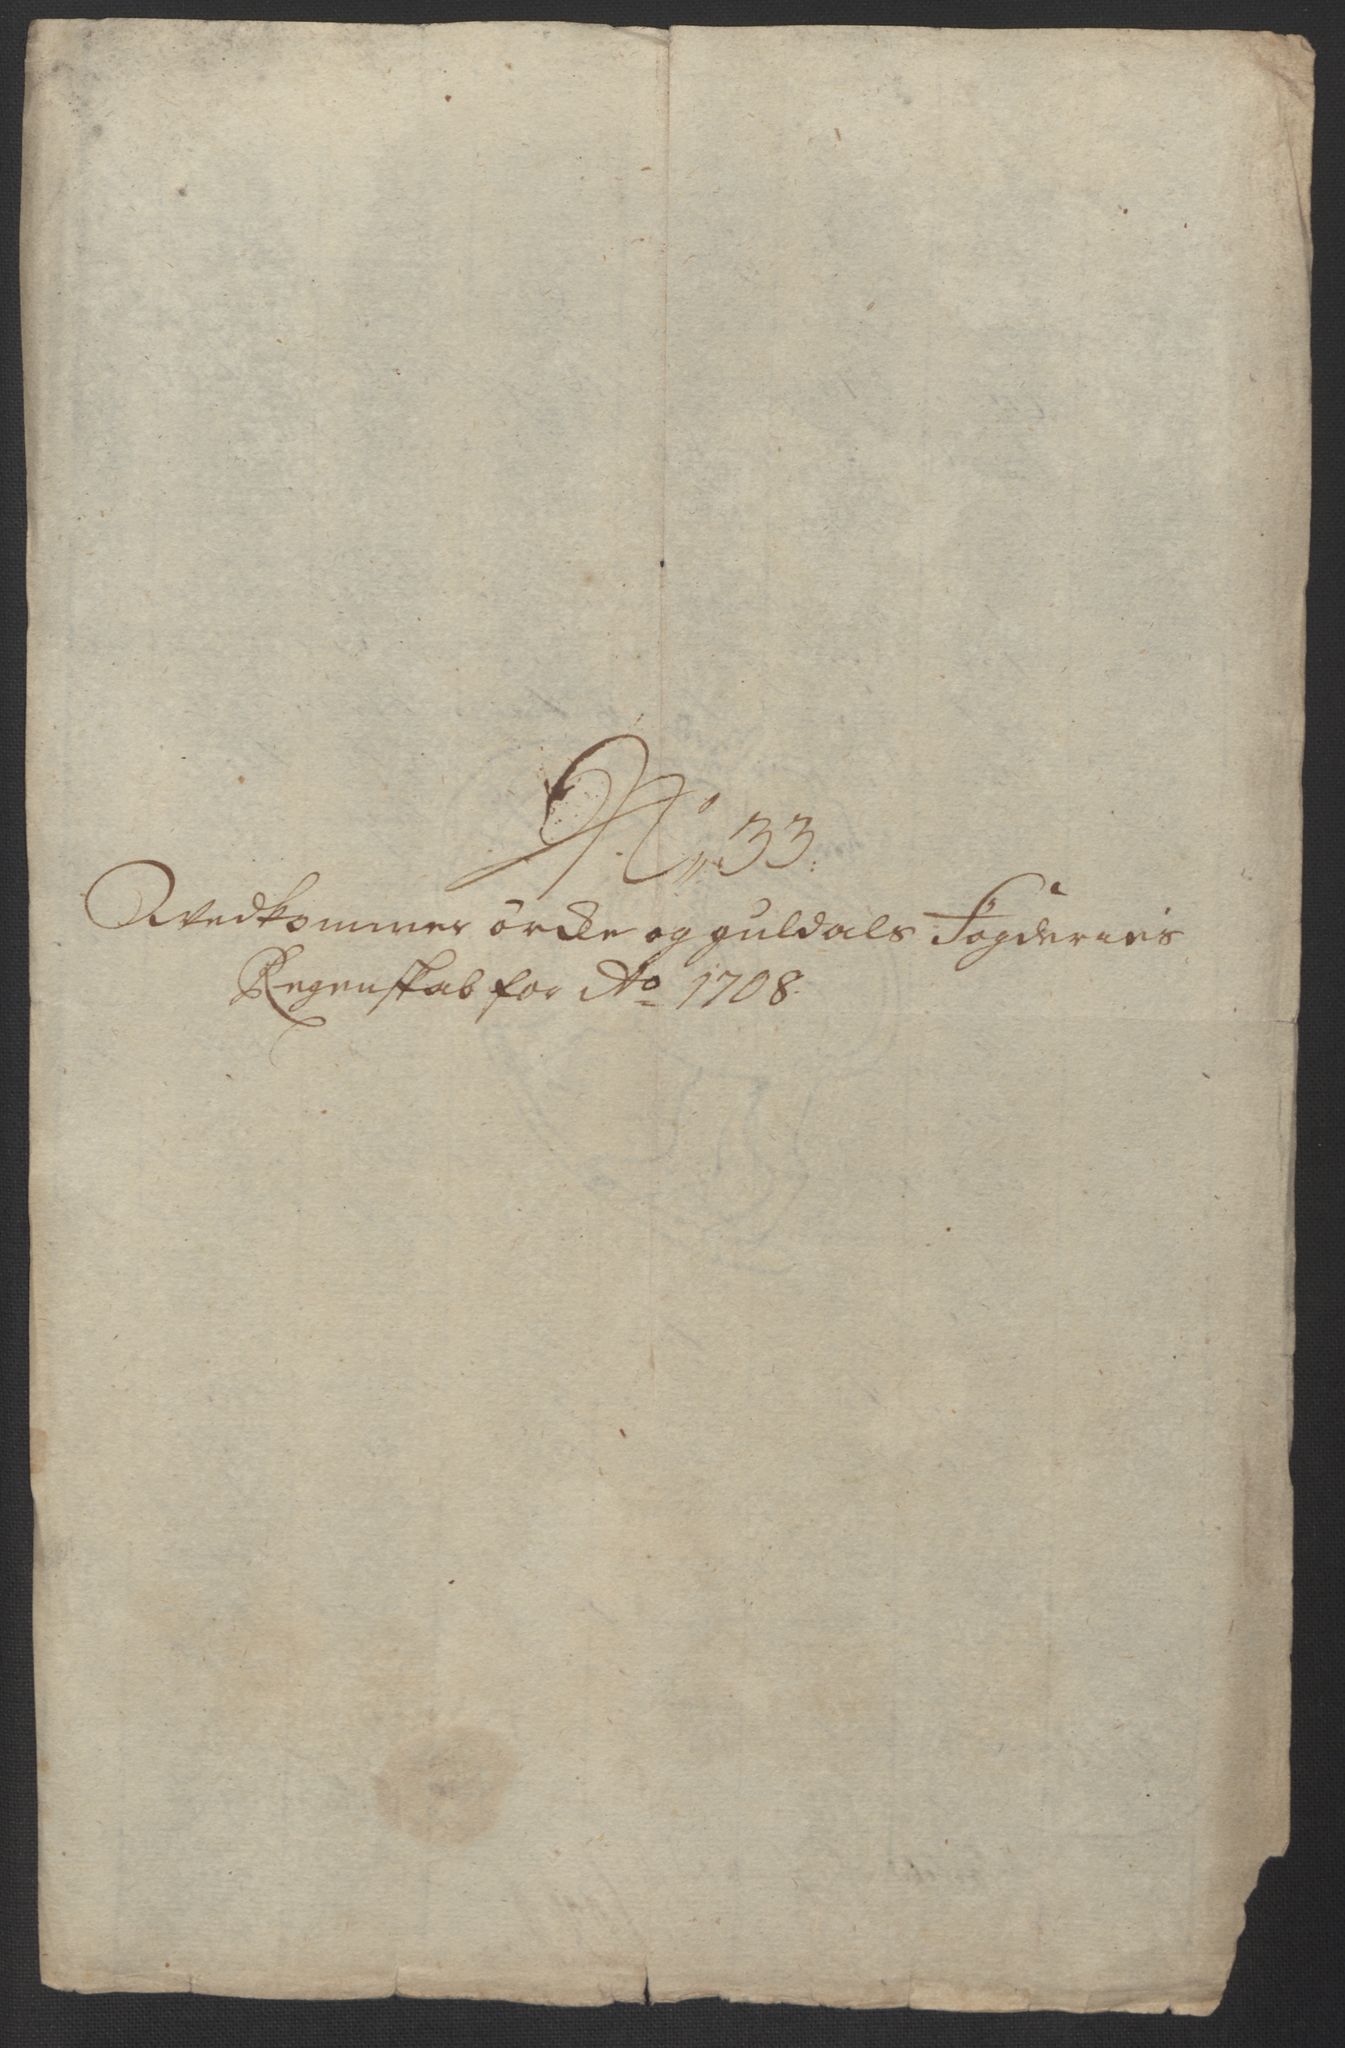 No 33.
Vedkommer örcke og guldals Fogderies
Regenskab for Ao 1708.